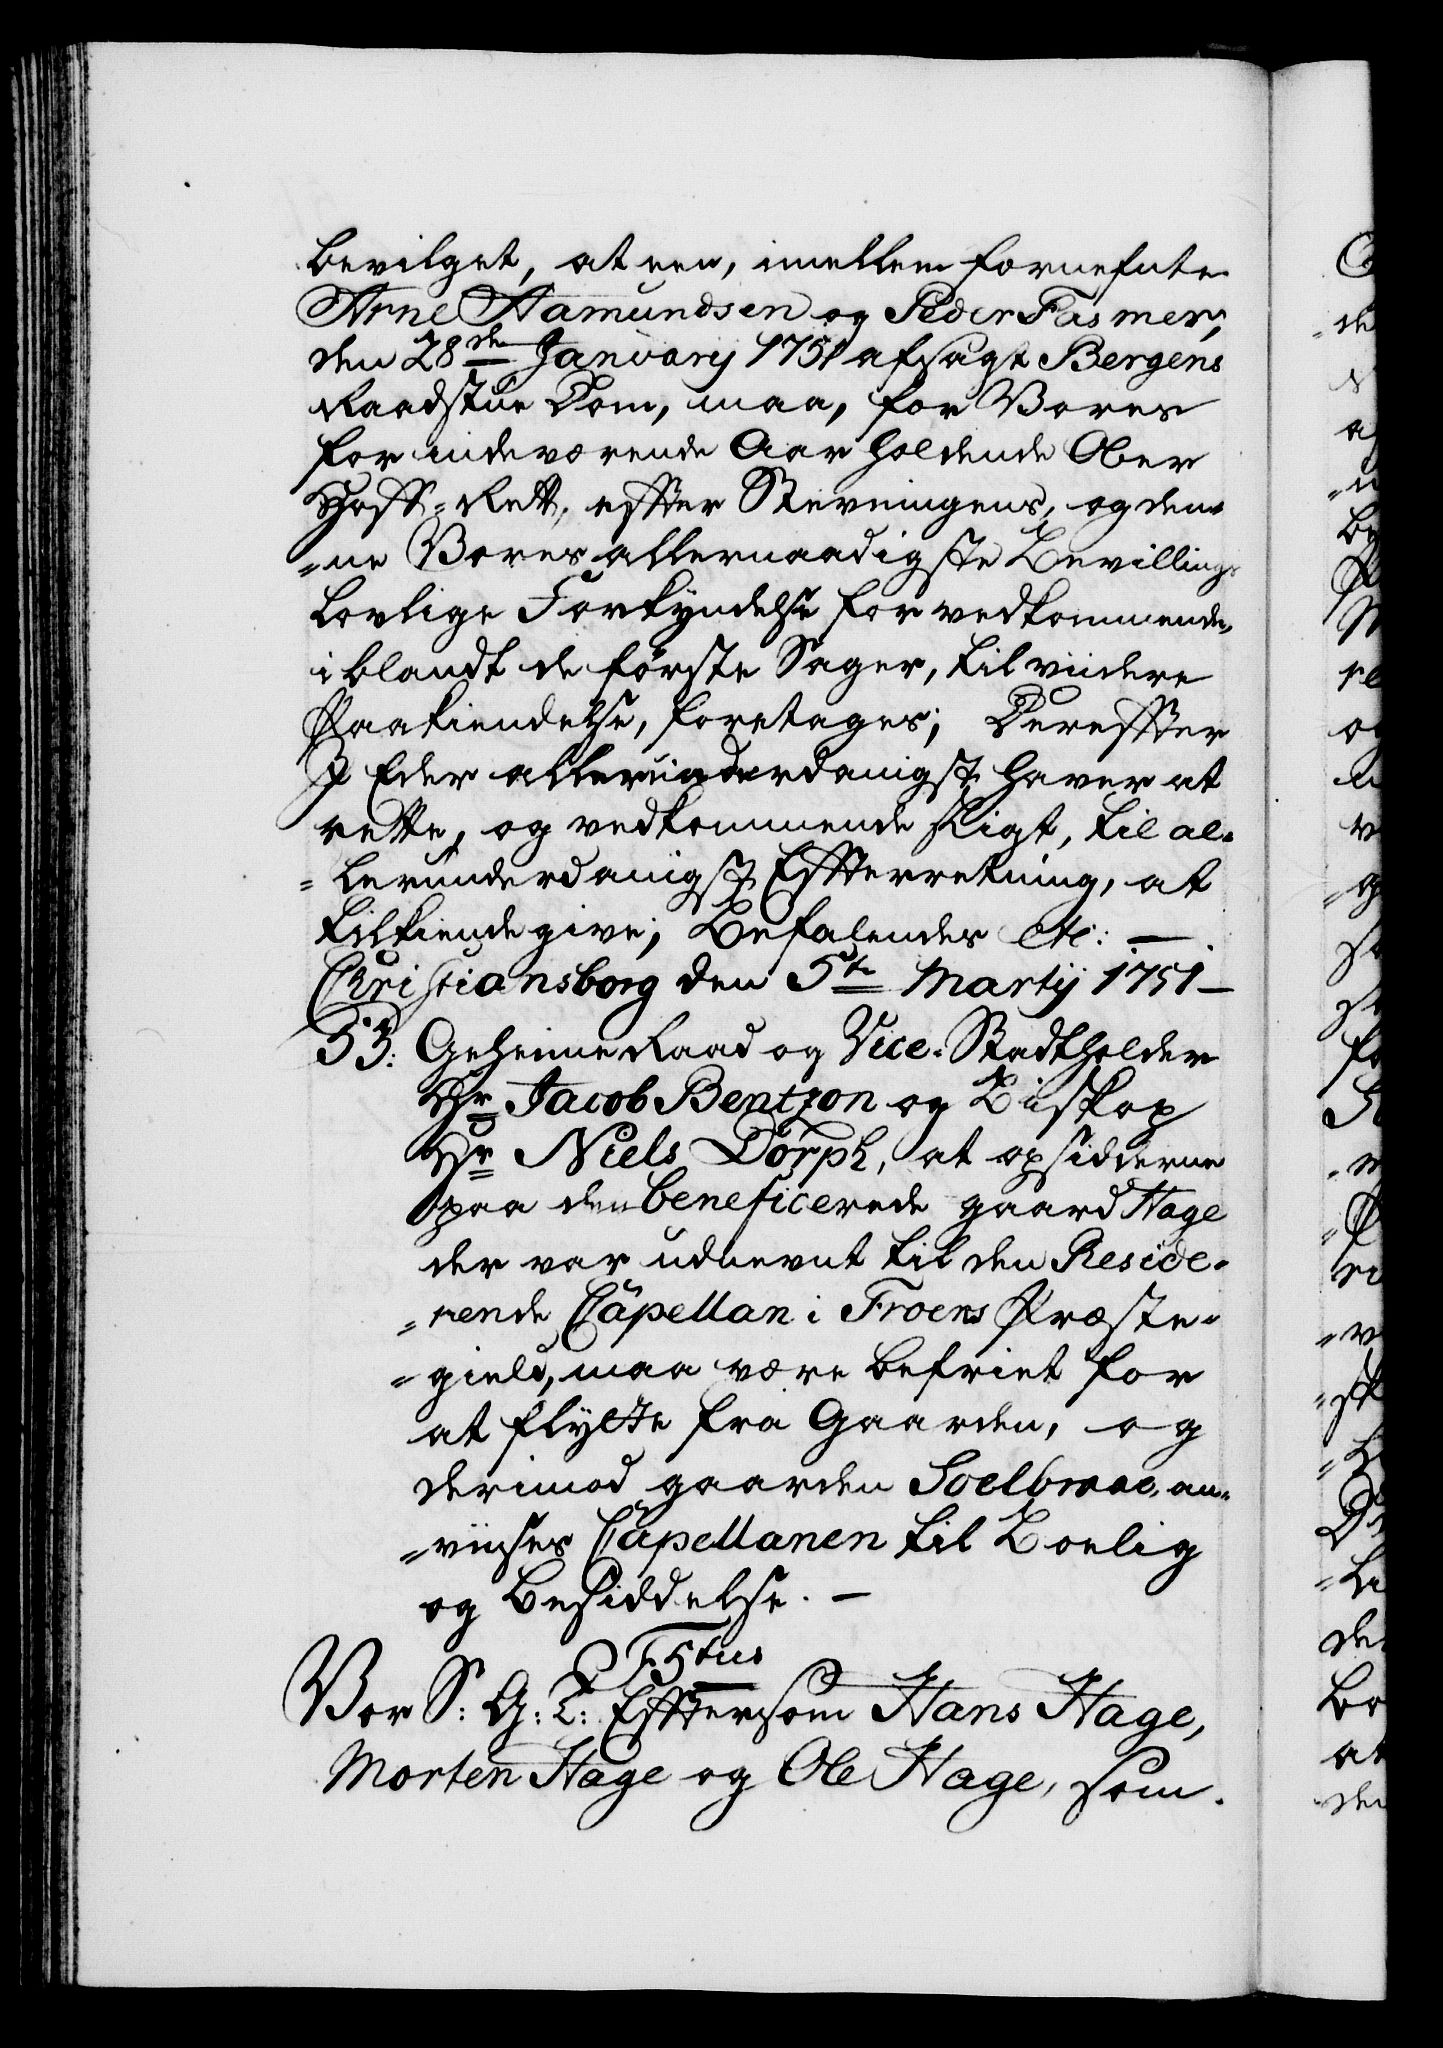 bevilget, at een, imellem fornefnte
Arne Aamundsen og Peder Fasmer,
den 28de Januarij 1751 afsagt Bergens
Raadstue Dom, maa, for Vores
for indeværende Aar holdende Ober
Hoff-Rett, effter Stevningens, og den-
=ne Vores allernaadigste Bevillings
lovlige Forkyndelse for vedkommende,
iblandt de förste Sager, til viidere
Paakiendelse, foretages; Dereffter
I Eder allerunderdanigst haver at
rette, og vedkommende sligt, til al-
=lerunderdanigst Effterretning, at
tilkiendegive; Befalendes etc: —
Christiansborg den 5te Martij 1751 —
53: Geheime Raad og Vice-Stadtholder
Hr Jacob Bentzon og Biskop
Hr Niels Dorph, at opsidderne
paa den beneficerede gaard Hage
der var udnevnt til den Reside-
=rende Capellan i Froens Præste-
=gield, maa være befriet for
at flytte fra Gaarden, og
derimod gaarden Soelbrae, an-
=viises Capellanen til Boelig
og Besiddelse. —
F5tus
Vor S: G: T: Efftersom Hans Hage,
Morten Hage og Ole Hage, som